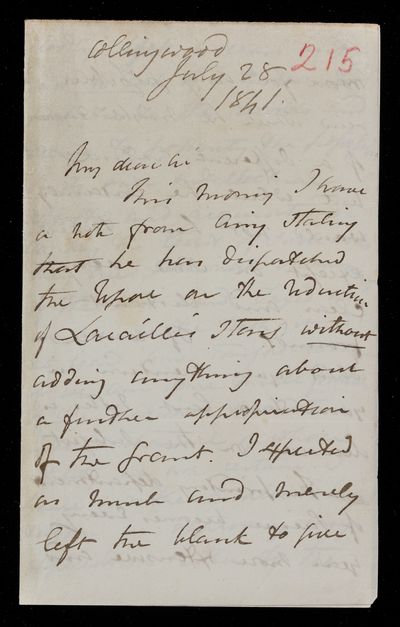 Collingwood
July 28
1841.
215
My dear Sir
This morning I have
a note from Airy stating
that he has dispatched
the report on the reduction
of Lacaille's Stars without
adding anything about
a further appropriation
of the Grant. I expected
as much and merely
left the blank to give